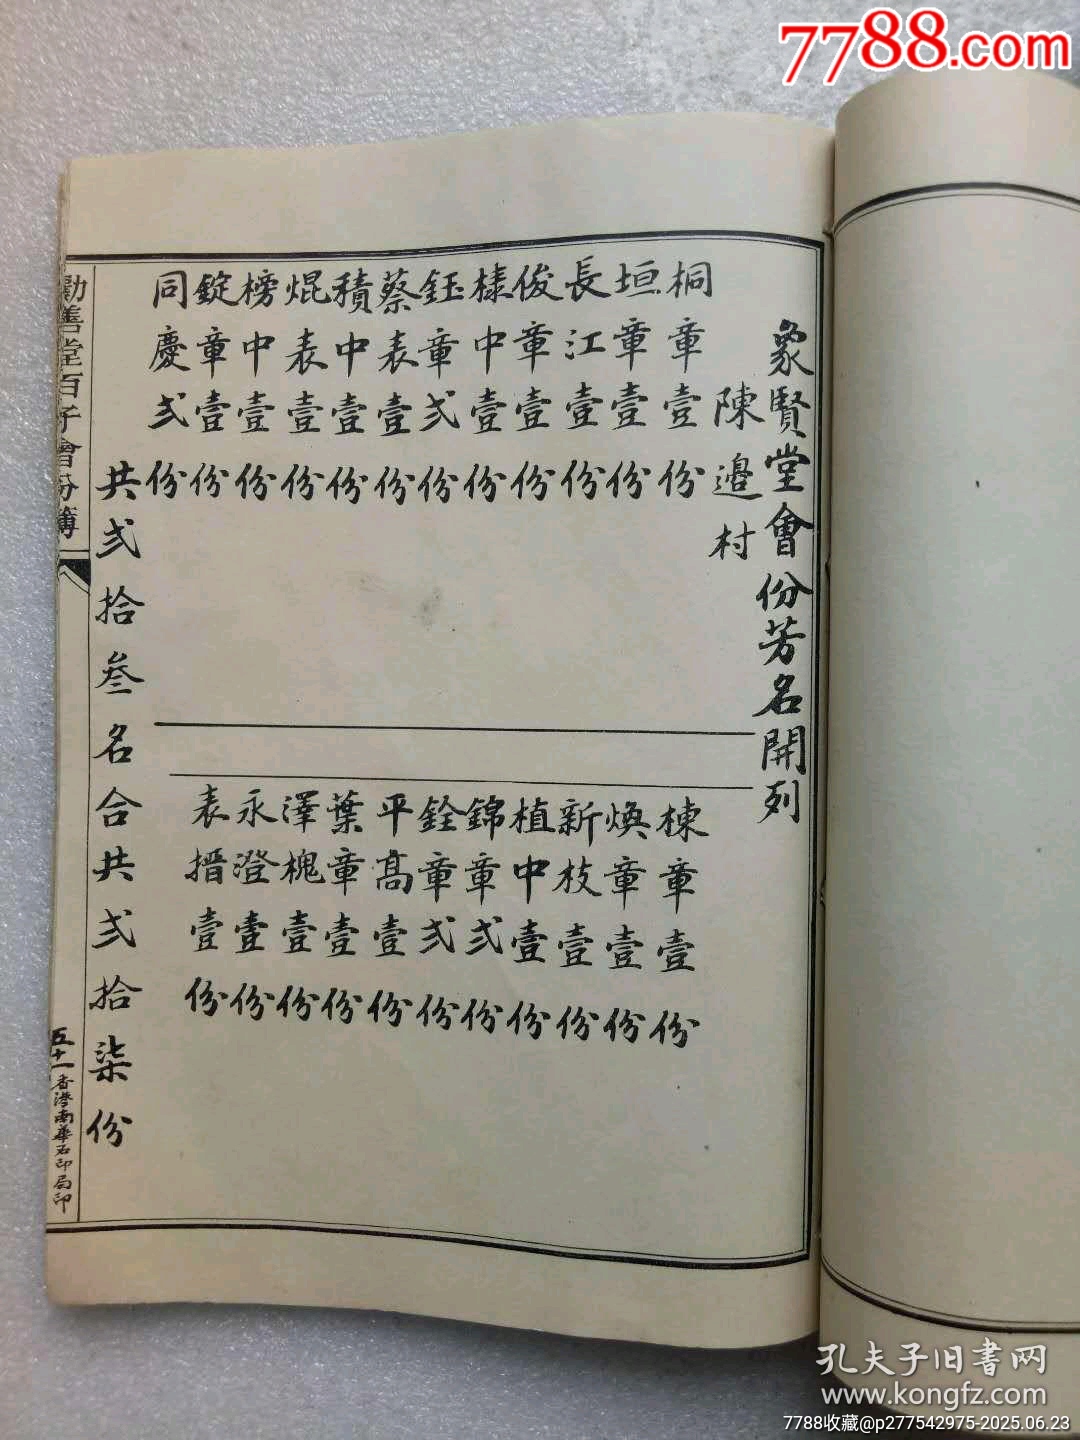 7788.com
象賢堂會份芳名開列
陳邊村
桐章壹份
垣章壹份
長江壹份
俊章壹份
樣中壹份
鈺章弍份
蔡表壹份
積中壹份
焜表壹份
榜中壹份
錠章壹份
同慶弍份
棟章壹份
煥章壹份
新枝壹份
植中壹份
錦章弍份
銓章弍份
平高壹份
葉章壹份
澤槐壹份
永澄壹份
表搢壹份
共弍拾叁名合共弍拾柒份
勸善堂百子會份簿
五十一
香港南華石印局印
孔夫子旧书网
www.kongfz.com
7788收藏@p277542975-2025.06.23